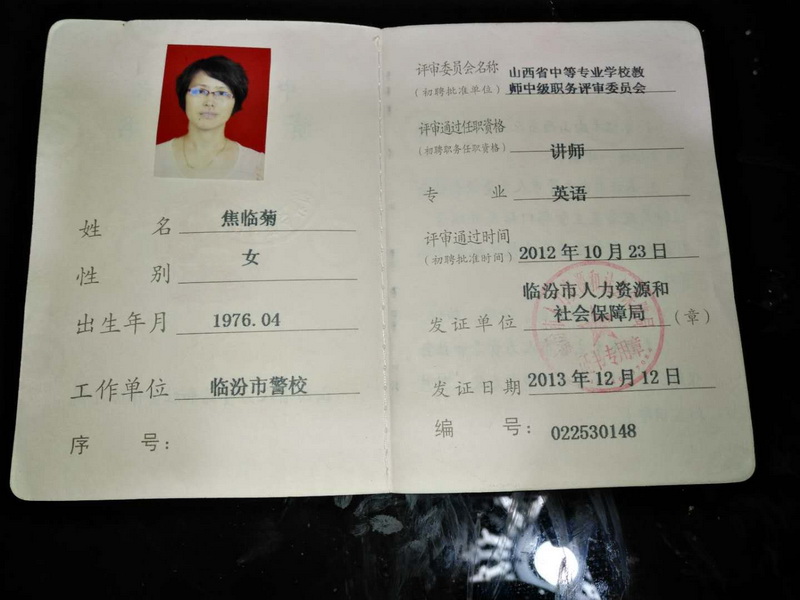 姓名 焦临菊
性别 女
出生年月 1976.04
工作单位 临汾市警校
序号：
评审委员会名称 山西省中等专业学校教
（初聘批准单位） 师中级职务评审委员会
评审通过任职资格
（初聘职务任职资格） 讲师
专业 英语
评审通过时间
（初聘批准时间） 2012年10月23日
临汾市人力资源和
发证单位 社会保障局 （章）
专用章
发证日期 2013年12月12日
编号： 022530148